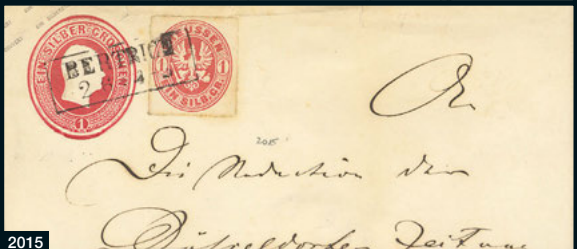 EIN SILBER GROSCHEN
1
BERTRICH
2
PREUSSEN
1 1
EIN SILB.GR.
2015
An
Die Redaction der
Düsseldorfer Zeitung
2015